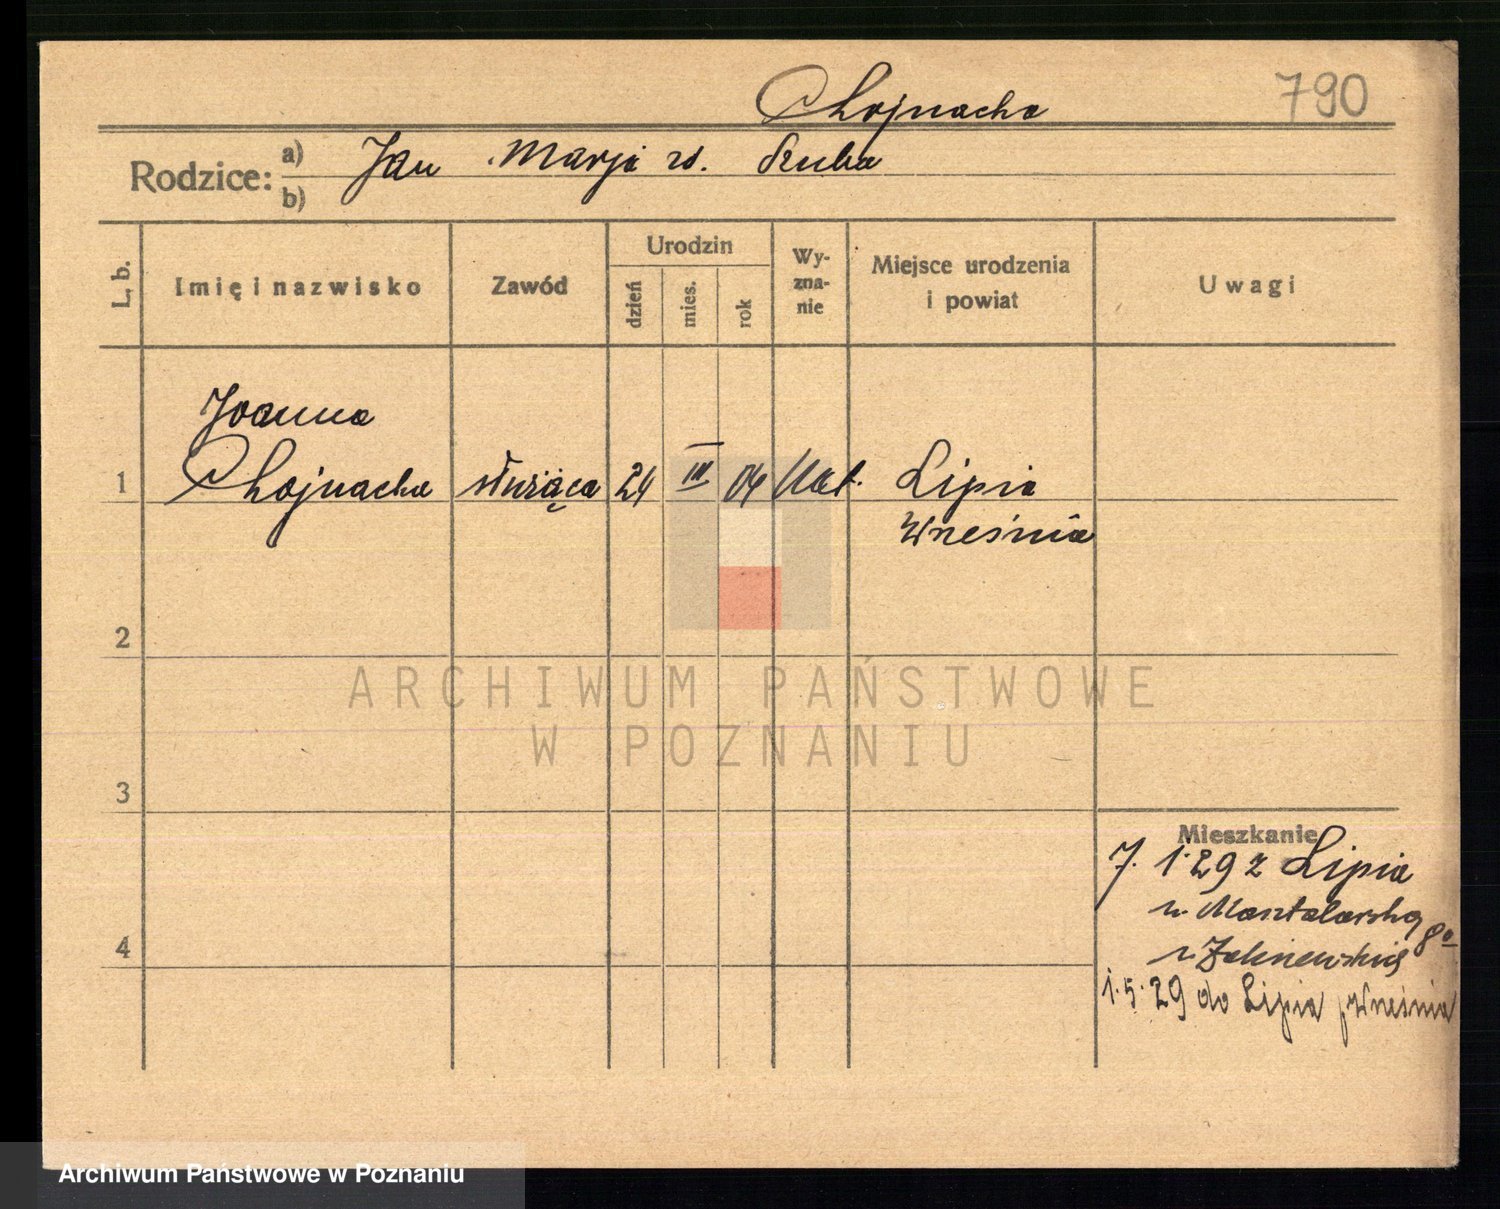 Chojnacka 790
Rodzice: a) b) Jan Marji z d. Kuba
L. b.
Imię i nazwisko
Zawód
Urodzin
dzień
mies.
rok
Wy-
zna-
nie
Miejsce urodzenia
i powiat
Uwagi
Joanna
1 Chojnacka służąca 24 III 04 kat. Lipia
Września
2
ARCHIWUM PAŃSTWOWE
W POZNANIU
3
Mieszkanie
7. 1. 29 z Lipia
u. Masztalarska 8a
1. 5. 29 do Lipia p. Września
4
Archiwum Państwowe w Poznaniu